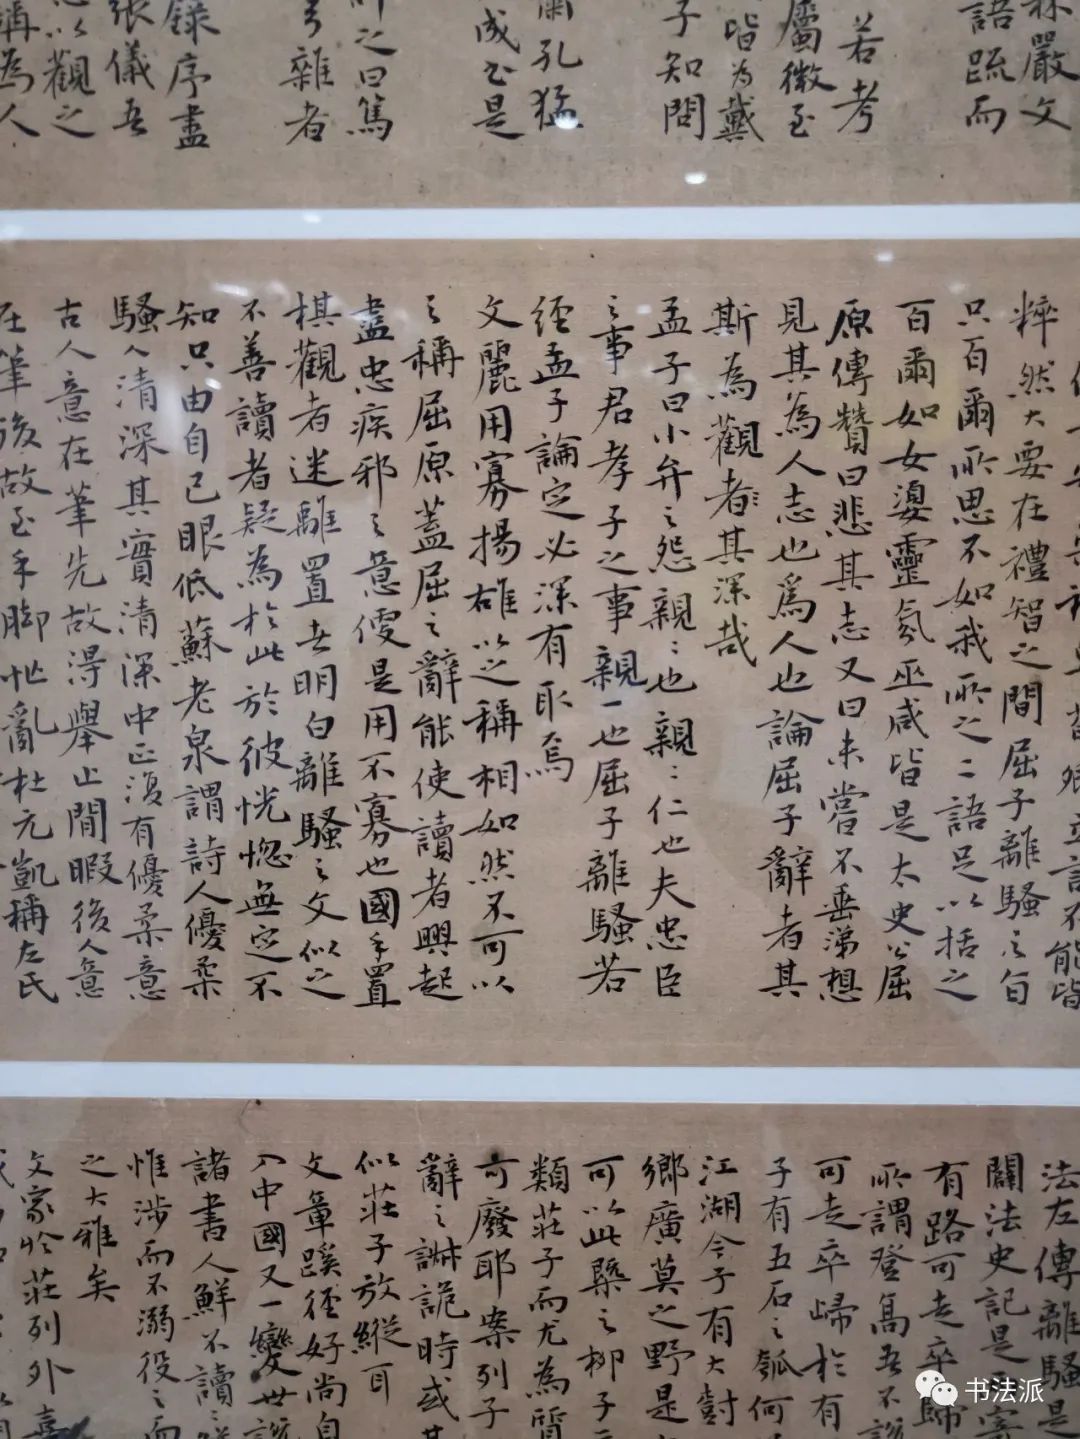 嚴文
語疏而
若考
屬徵至
皆為戴
子知問
孔猛
成書是
之曰篤
雜者
錄序盡
張儀吾
以觀之
稱為人
卿立言不能皆
粹然大要在禮智之間屈子離騷之旨
只百爾所思不如我所之二語足以括之
百爾如女嬃靈氛巫咸皆是太史公屈
原傳贊曰悲其志又曰未嘗不垂涕想
見其為人志也為人也論屈子辭者其
斯為觀者其深哉
孟子曰小弁之怨親親也親親仁也夫忠臣
之事君孝子之事親一也屈子離騷若
經孟子論定必深有取焉
文麗用寡揚雄以之稱相如然不可以
之稱屈原蓋屈之辭能使讀者興起
盡忠疾邪之意便是用不寡也國手置
棋觀者迷離置者明白離騷之文似之
不善讀者疑為於此於彼恍惚無定不
知只由自己眼低蘇老泉謂詩人優柔
騷人清深其實清深中正復有優柔意
古人意在筆先故得舉止閒暇後人意
在筆後故至手腳忙亂杜元凱稱左氏
法左傳離騷是
闢法史記是
有路可走卒歸
所謂登高吾不
可走卒歸於有
子有五石之瓠何
江湖今子有大樹
鄉廣莫之野是
可以此槩之柳子
類莊子而尤為質
可廢耶案列子
辭之諔詭時或
似莊子放縱耳
文章蹊徑好尚自
入中國又一變世
諸書人鮮不讀讀
惟涉而不溺役之而
之大雅矣
文家於莊列外喜
书法派